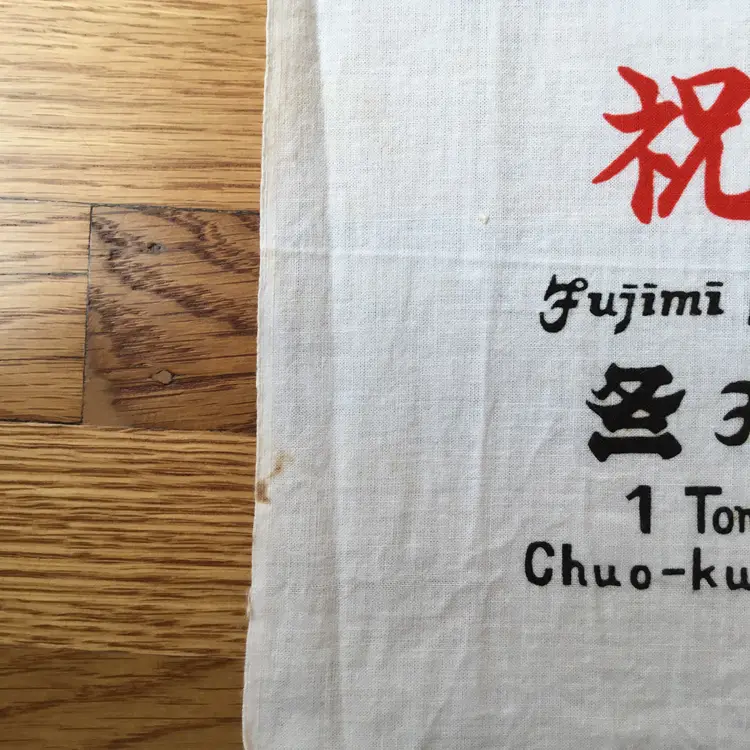 祝
Fujimi
圣
1 Ton
Chuo-ku